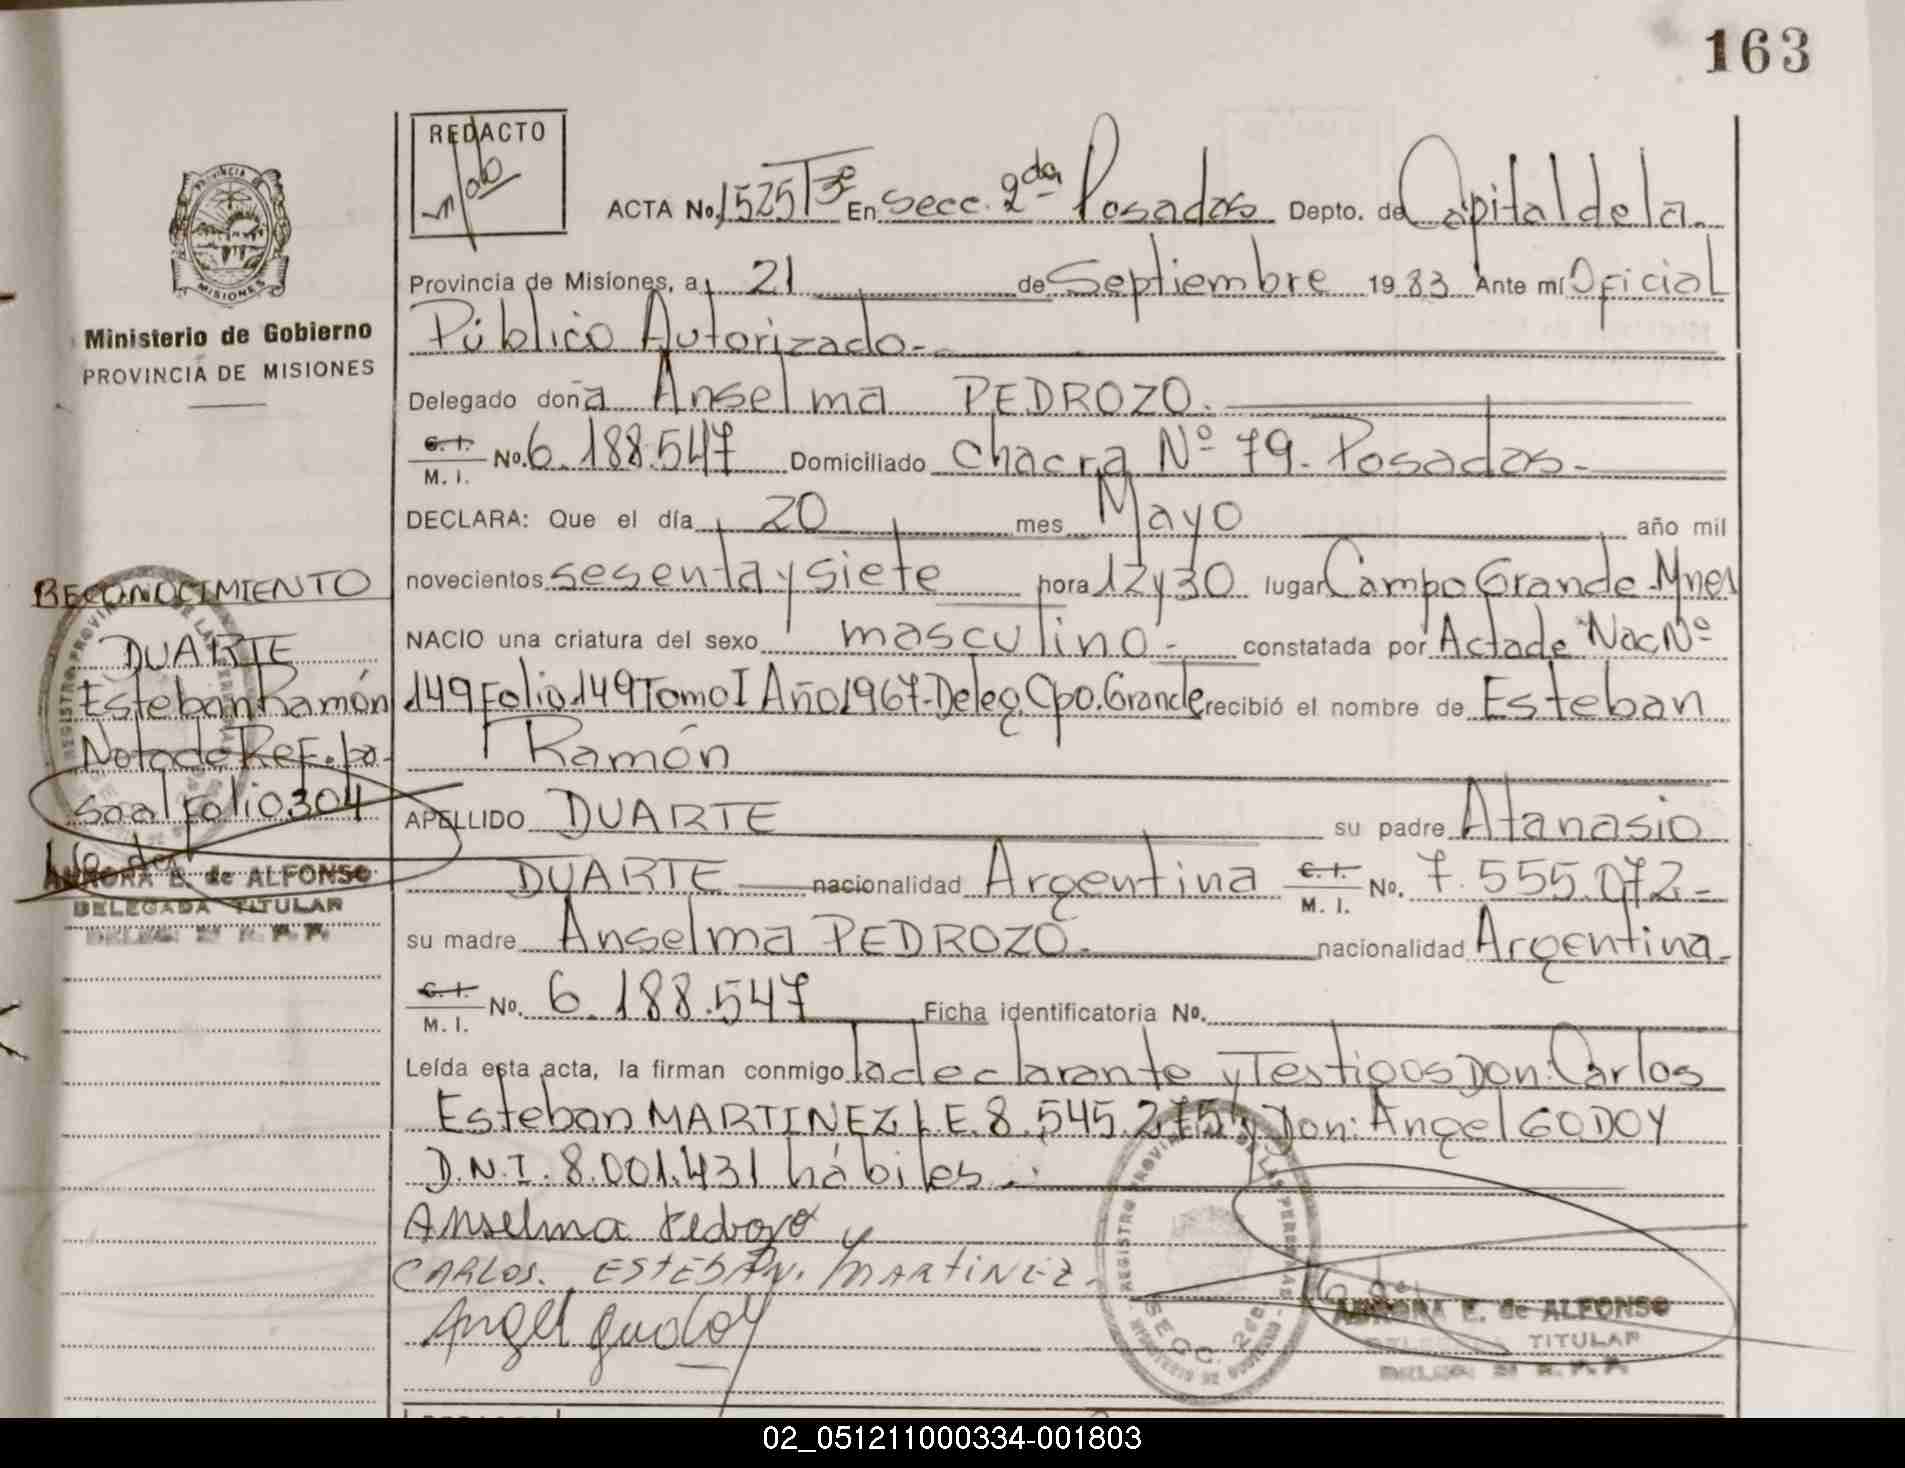 163
REDACTO
ACTA No. 1525 Tº 3º En Secc. 2da Posadas Depto. de Capital de la.
PROVINCIA DE MISIONES
Ministerio de Gobierno
PROVINCIA DE MISIONES
Provincia de Misiones, a 21 de Septiembre 1983 Ante mí Oficial
Público Autorizado.-
Delegado doña Anselma PEDROZO.
C. I.
M. I. No. 6.188.547 Domiciliado Chacra Nº 79. Posadas.-
DECLARA: Que el día 20 mes Mayo año mil
novecientos sesenta y siete hora 12 y 30 lugar Campo Grande-Mnes
NACIO una criatura del sexo masculino.- constatada por Acta de Nac Nº
149 Folio 149 Tomo I Año 1967-Deleg. Cpo. Grande recibió el nombre de Esteban
Ramón
APELLIDO DUARTE su padre Atanasio
DUARTE nacionalidad Argentina C. I. M. I. No. 7.555.072.-
su madre Anselma PEDROZO.- nacionalidad Argentina.-
C. I.
M. I. No. 6.188.547 Ficha identificatoria No.
Leída esta acta, la firman conmigo la declarante y Testigos Don: Carlos
Esteban MARTINEZ L.E. 8.545.275 y Don: Angel GODOY
D.N.I. 8.001.431 hábiles.-
Anselma Pedrozo
CARLOS. ESTEBAN. MARTINEZ.
Angel Godoy
AURORA E. de ALFONSO
DELEGADA TITULAR
RECONOCIMIENTO
DUARTE
Esteban Ramón
Nota de Ref. pa-
sa al Folio 304
AURORA E. de ALFONSO
DELEGADA TITULAR
02_051211000334-001803